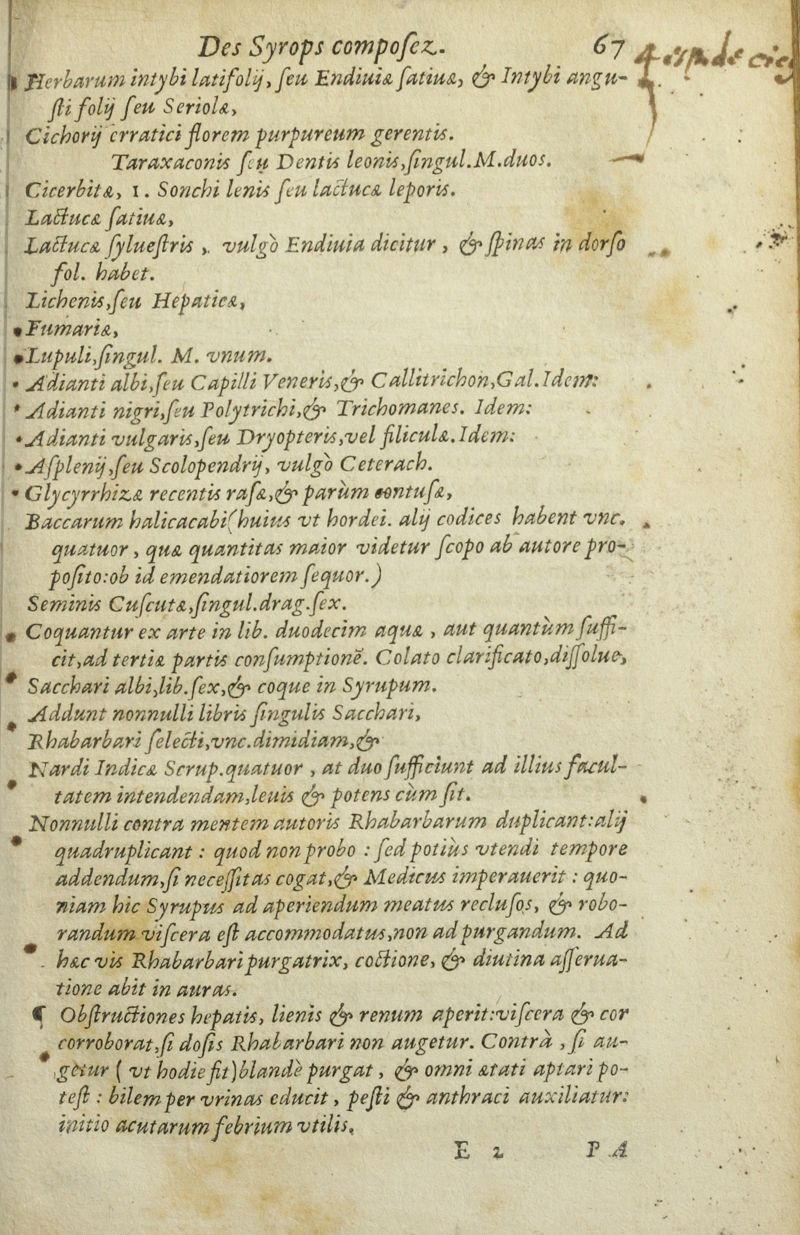 Des Syrops compoſez. 67
Herbarum intybi latifolij, ſeu Endiuiæ ſatiuæ, & Intybi angu-
ſti folij ſeu Seriolæ,
Cichorij erratici florem purpureum gerentis.
Taraxaconis ſeu Dentis leonis, ſingul. M. duos.
Cicerbitæ, 1. Sonchi lenis ſeu lactucæ leporis.
Lactucæ ſatiuæ,
Lactucæ ſylueſtris, vulgò Endiuia dicitur, & ſpinas in dorſo
fol. habet.
Lichenis, ſeu Hepaticæ,
Fumariæ,
Lupuli, ſingul. M. vnum.
Adianti albi, ſeu Capilli Veneris, & Callitrichon, Gal. Idem:
Adianti nigri, ſeu Polytrichi, & Trichomanes. Idem:
Adianti vulgaris, ſeu Dryopteris, vel filiculæ. Idem:
Aſplenij, ſeu Scolopendrij, vulgò Ceterach.
Glycyrrhizæ recentis raſæ, & parùm contuſæ,
Baccarum halicacabi (huius vt hordei. alij codices habent vnc.
quatuor, quæ quantitas maior videtur ſcopo ab autore pro-
poſito: ob id emendatiorem ſequor.)
Seminis Cuſcutæ, ſingul. drag. ſex.
Coquantur ex arte in lib. duodecim aquæ, aut quantùm ſuffi-
cit, ad tertiæ partis conſumptionē. Colato clarificato, diſſolue,
Sacchari albi, lib. ſex, & coque in Syrupum.
Addunt nonnulli libris ſingulis Sacchari,
Rhabarbari ſelecti, vnc. dimidiam, &
Nardi Indicæ Scrup. quatuor, at duo ſufficiunt ad illius facul-
tatem intendendam, leuis & potens cùm ſit.
Nonnulli contra mentem autoris Rhabarbarum duplicant: alij
quadruplicant: quod non probo: ſed potiùs vtendi tempore
addendum, ſi neceſſitas cogat, & Medicus imperauerit: quo-
niam hic Syrupus ad aperiendum meatus recluſos, & robo-
randum viſcera eſt accommodatus, non ad purgandum. Ad
hæc vis Rhabarbari purgatrix, coctione, & diutina aſſerua-
tione abit in auras.
¶ Obſtructiones hepatis, lienis & renum aperit: viſcera & cor
corroborat, ſi doſis Rhabarbari non augetur. Contrà, ſi au-
getur (vt hodie fit) blandè purgat, & omni ætati aptari po-
teſt: bilem per vrinas educit, peſti & anthraci auxiliatur:
initio acutarum febrium vtilis.
E 2 PA